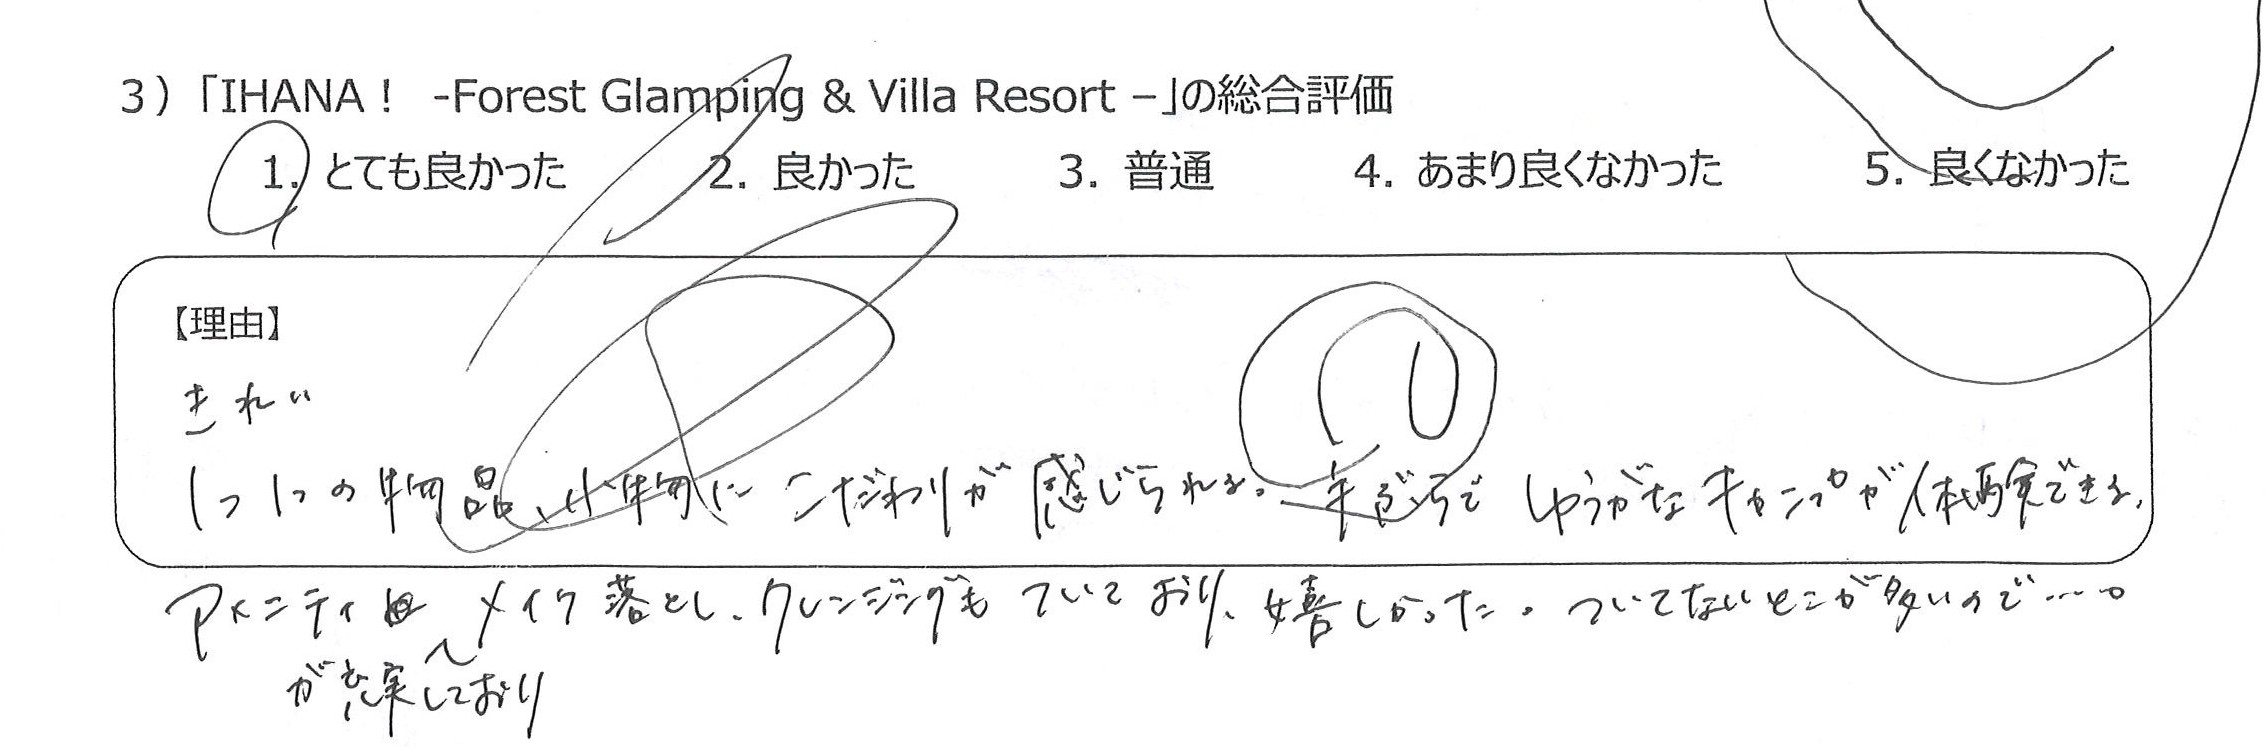 3）「IHANA！ -Forest Glamping & Villa Resort –」の総合評価
1. とても良かった 2. 良かった 3. 普通 4. あまり良くなかった 5. 良くなかった
【理由】
きれい
1つ1つの物品、小物にこだわりが感じられる。手ぶらで ゆうがなキャンプが体験できる。
アメニティ メイク落とし、クレンジングもついており、嬉しかった。ついてないとこが多いので…。
が充実しており